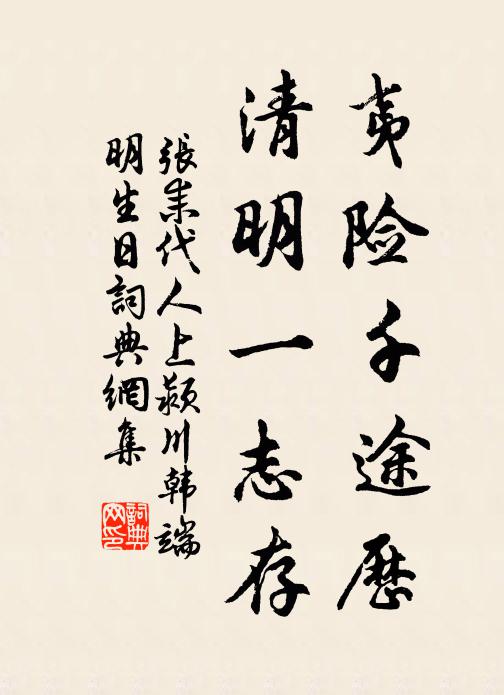 夷险千途歷
清明一志存
張耒代人上潁川韩端
明生日詞典網集
詞典网印